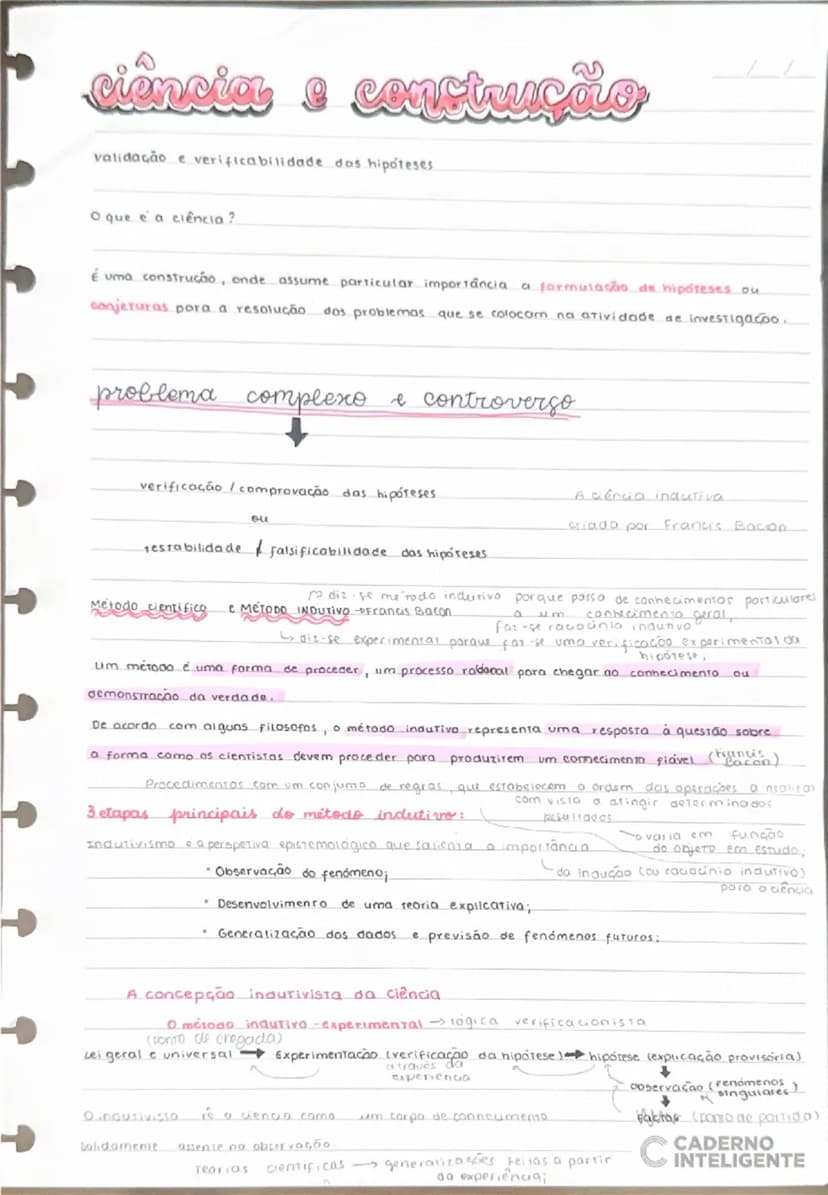 ciência e construção
validação e verificabilidade das hipóteses
O que é a ciência?
É uma construção, onde assume particular importância a formulação de hipóteses ou
conjeturas para a resolução dos problemas que se colocam na atividade de investigação.
problema complexo e controverso
verificação / comprovação das hipóteses
A ciência indutiva
ou
criada por Francis Bacon
testabilidade / falsificabilidade das hipóteses
↱ diz-se método indutivo porque passa de conhecimentos particulares
Método científico e MÉTODO INDUTIVO → Francis Bacon
a um conhecimento geral,
faz-se raciocínio indutivo
↳ diz-se experimental porque faz-se uma verificação experimental da
hipótese,
Um método é uma forma de proceder, um processo racional para chegar ao conhecimento ou
demonstração da verdade.
De acordo com alguns filósofos, o método indutivo representa uma resposta à questão sobre
a forma como os cientistas devem proceder para produzirem um conhecimento fiável (Francis
Bacon)
Procedimentos com um conjunto de regras, que estabelecem a ordem das operações a realizar
com vista a atingir determinados
3 etapas principais do método indutivo:
resultados
→ varia em função
do objeto em estudo;
Indutivismo é a perspetiva epistemológica que salienta a importância
da indução (ou raciocínio indutivo)
para a ciência
• Observação do fenómeno;
• Desenvolvimento de uma teoria explicativa;
• Generalização dos dados e previsão de fenómenos futuros;
A concepção indutivista da ciência
O método indutivo-experimental → lógica verificacionista
(ponto de chegada)
Lei geral e universal → Experimentação (verificação da hipótese) → hipótese (explicação provisória)
através da
experiência
observação (fenómenos
singulares)
O indutivista vê a ciência como um corpo de conhecimento
factos (ponto de partida)
solidamente assente na observação
teorias científicas → generalizações feitas a partir
da experiência;
CADERNO
INTELIGENTE